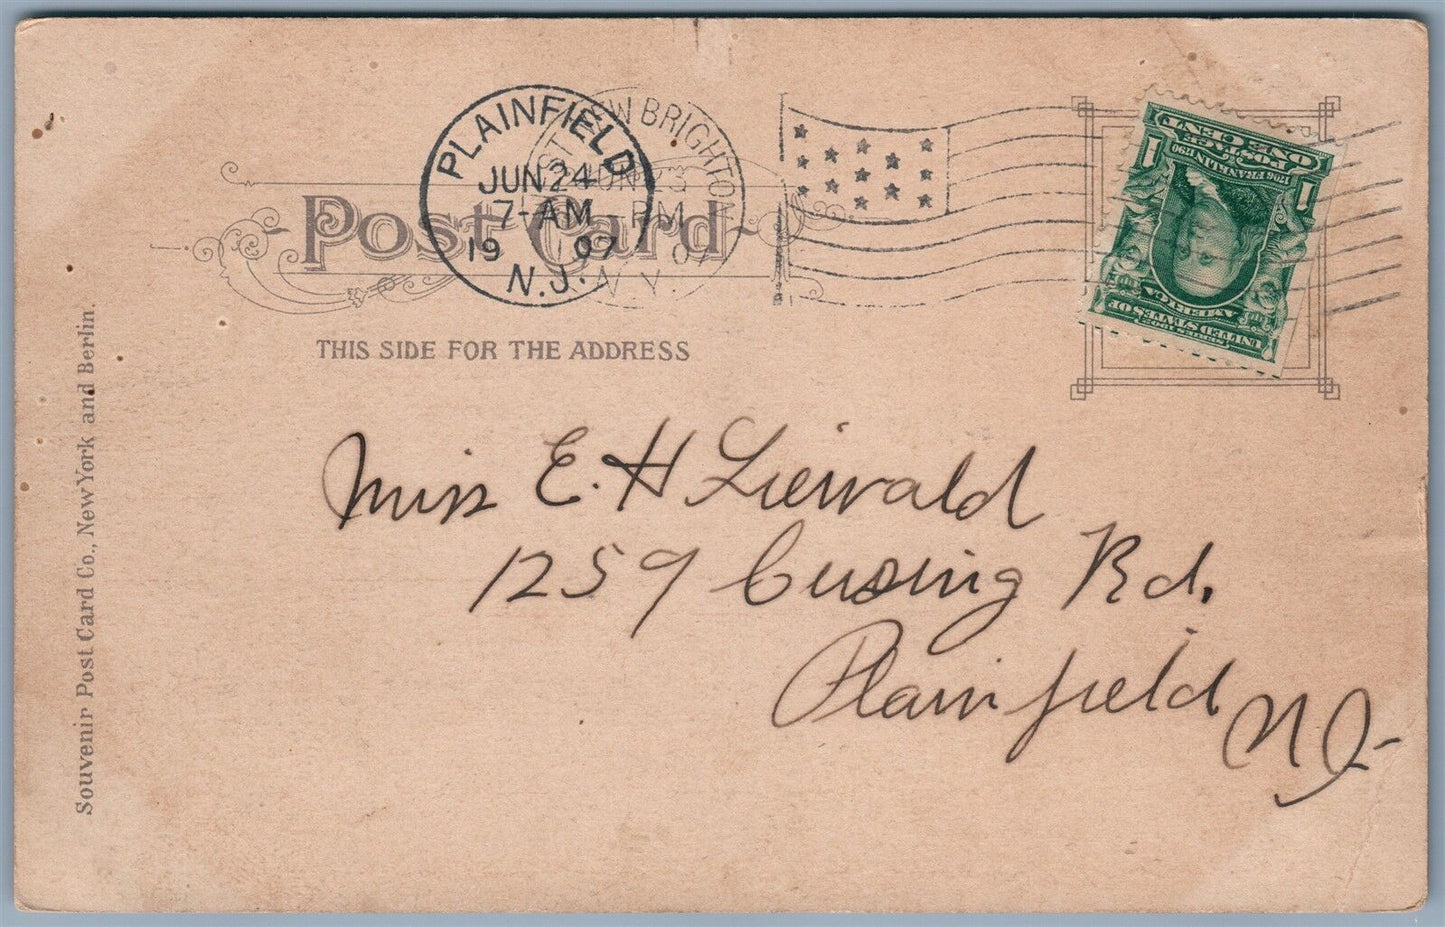 PLAINFIELD
JUN 24
7-AM
19 07
N.J.
NEW BRIGHTON
JUN 23
PM
07
N.Y.
Post Card
THIS SIDE FOR THE ADDRESS
POSTAGE
ONE CENT
1706 FRANKLIN 1790
1 1
SERIES 1902
UNITED STATES OF
AMERICA
Miss E. H Liewald
1259 Cushing Rd.
Plainfield N J-
Souvenir Post Card Co., New York and Berlin.